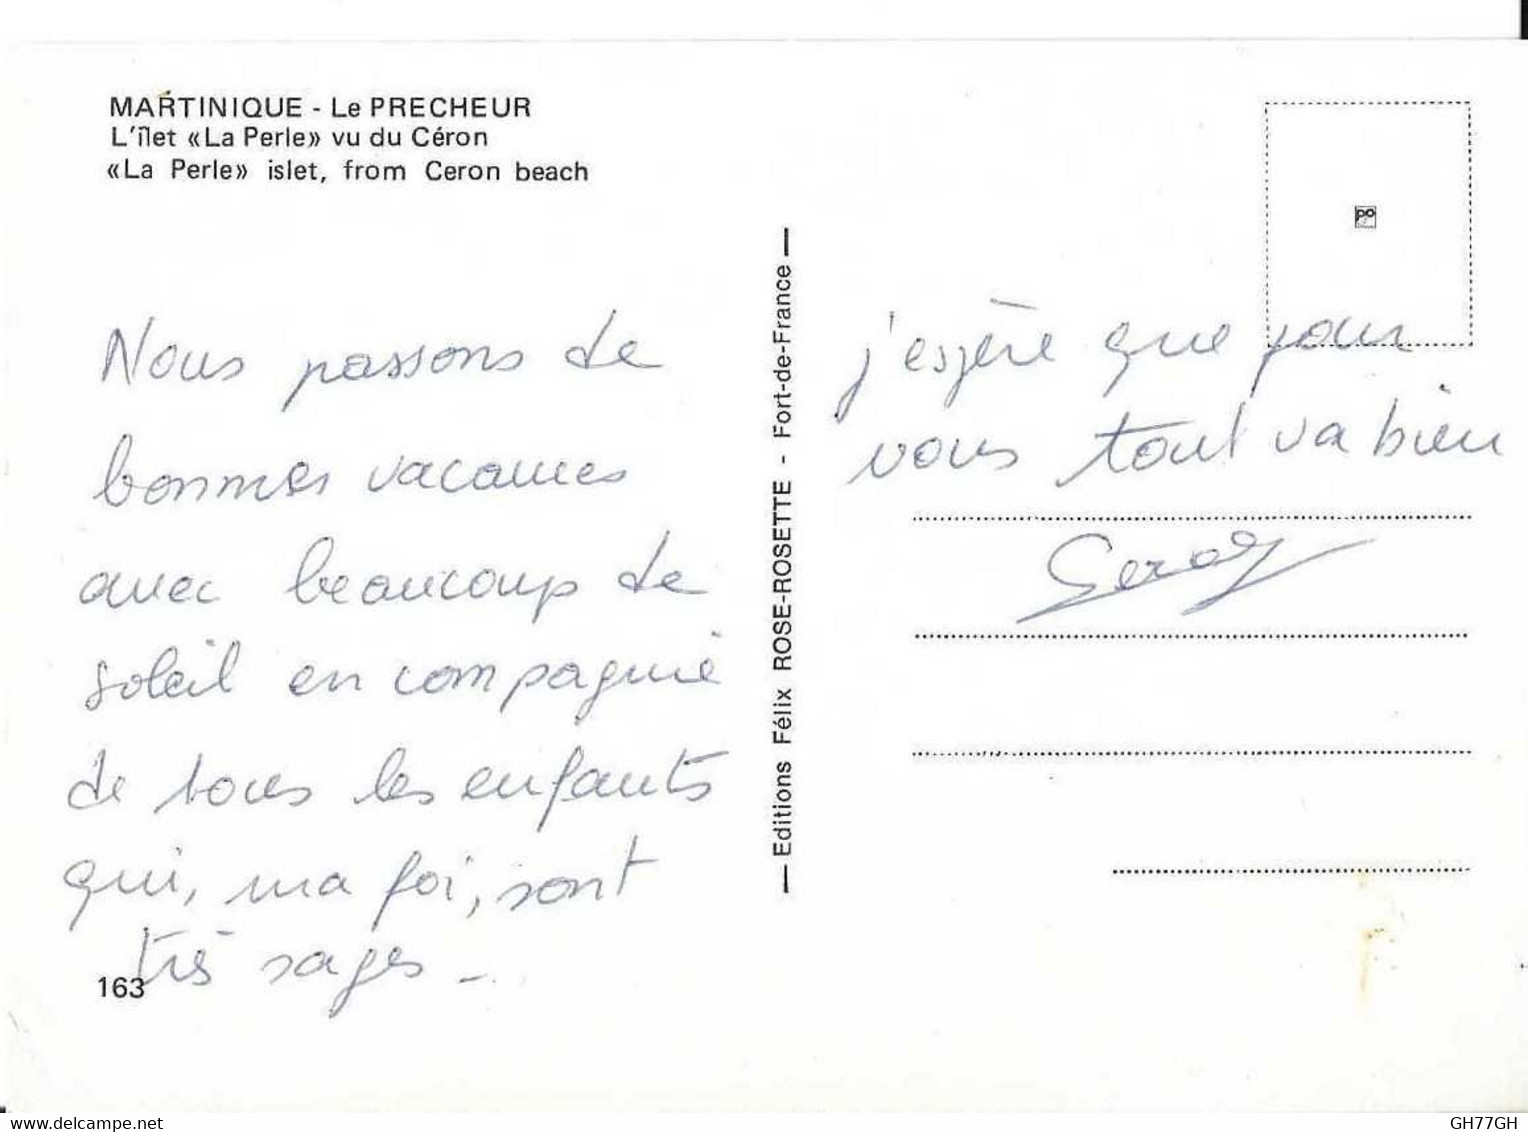 MARTINIQUE - Le PRECHEUR
L'îlet «La Perle» vu du Céron
«La Perle» islet, from Ceron beach
Nous passons de
bonnes vacances
avec beaucoup de
soleil en compagnie
de tous les enfants
qui, ma foi, sont
très sages -
163
— Editions Félix ROSE-ROSETTE - Fort-de-France —
j'espère que pour
vous tout va bien
GH77GH
delcampe.net